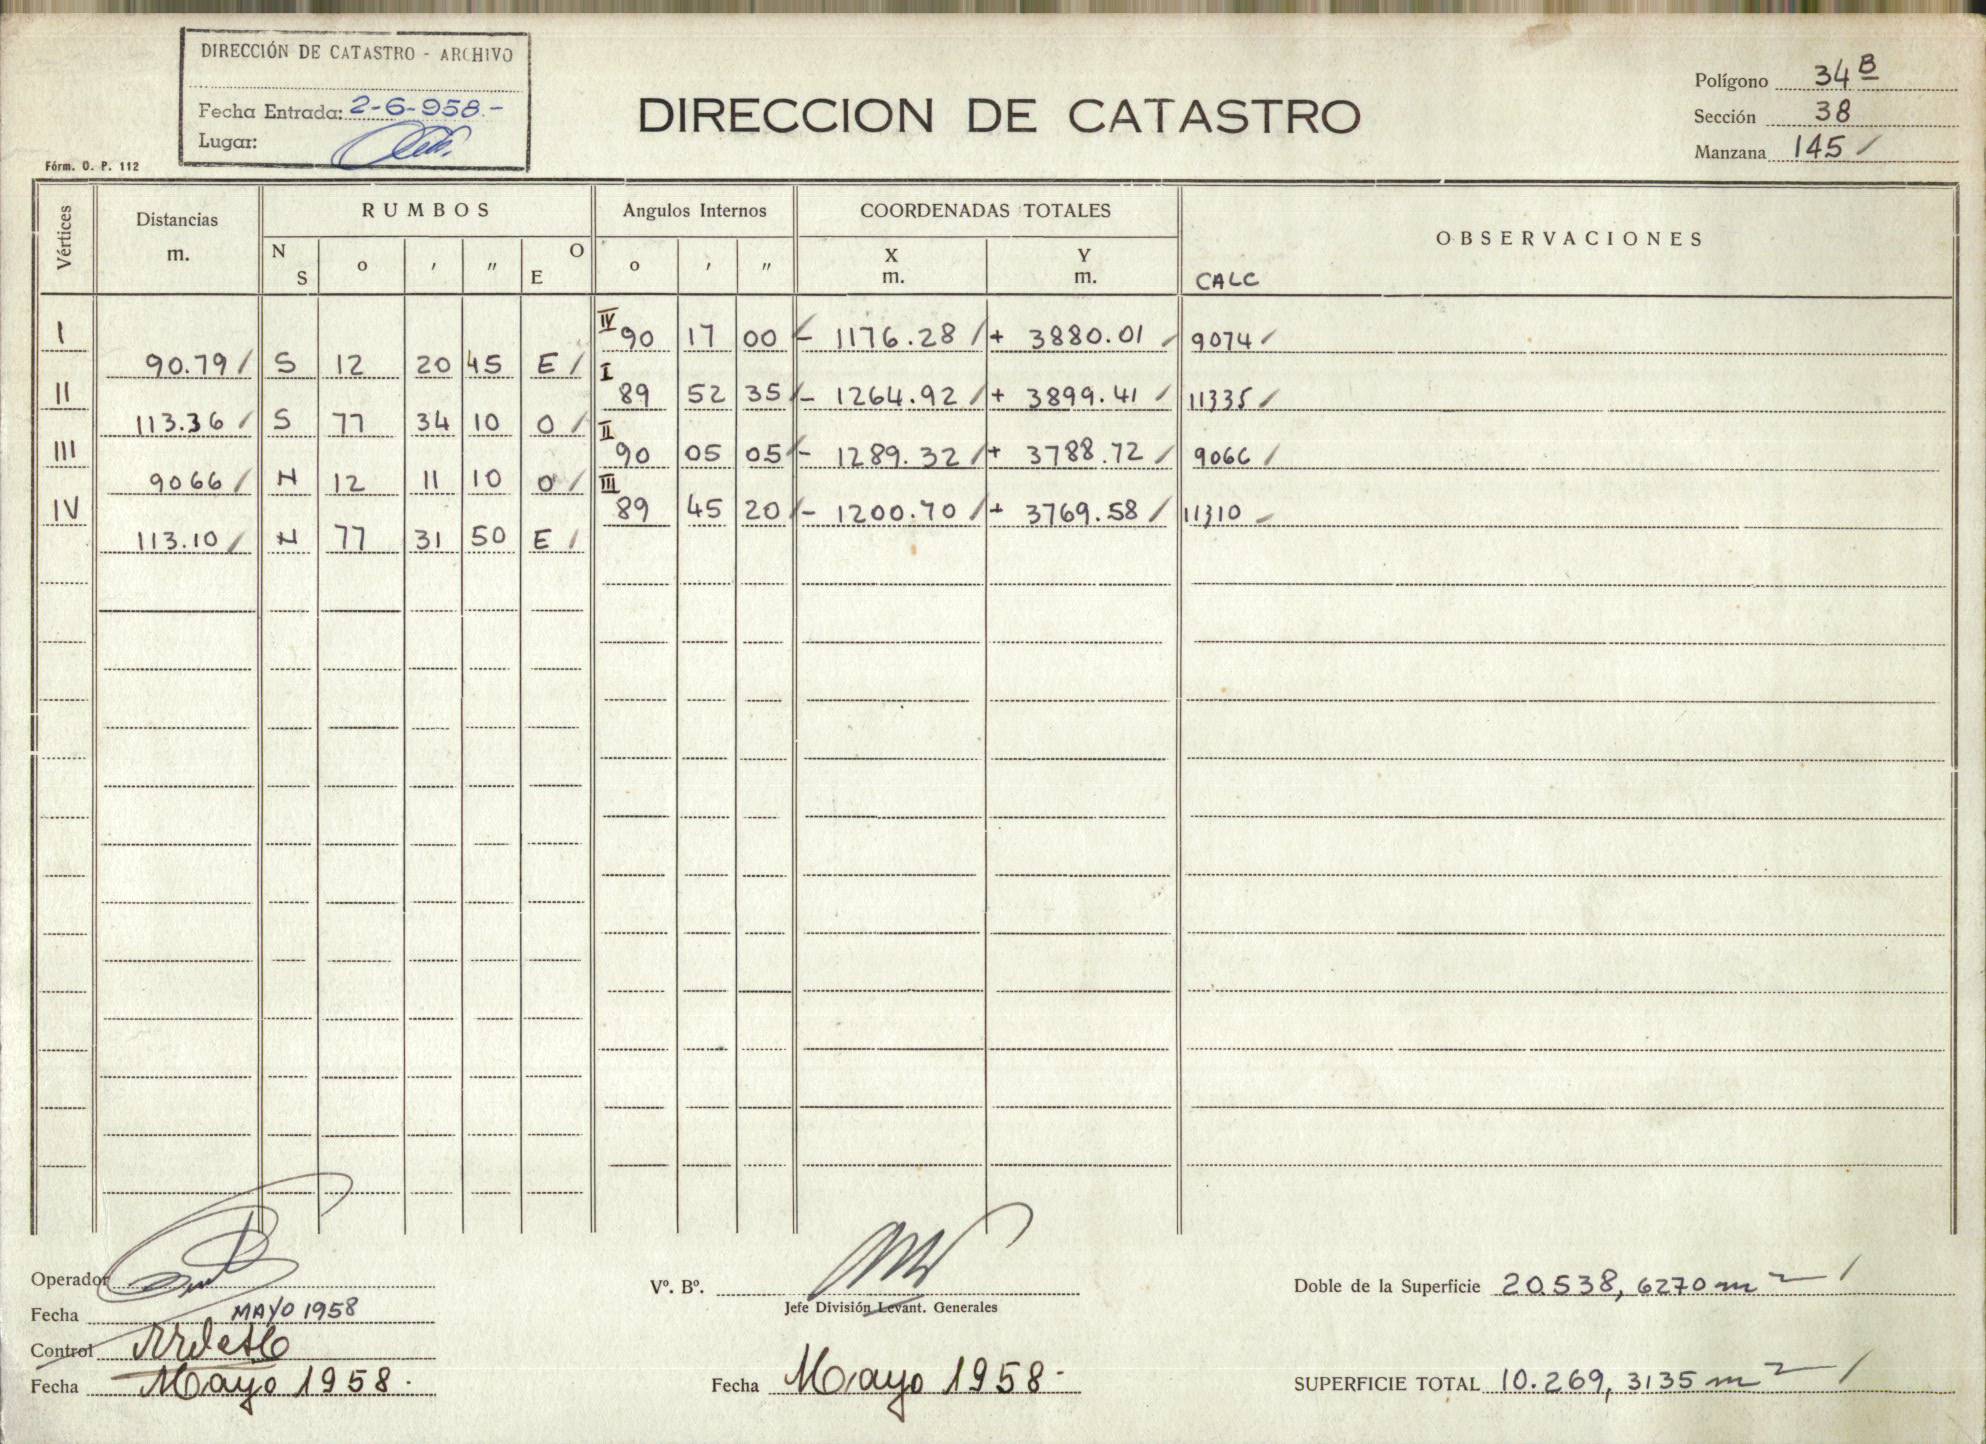 DIRECCIÓN DE CATASTRO - ARCHIVO
Fecha Entrada: 2-6-958.-
Lugar:
Fórm. O. P. 112
DIRECCION DE CATASTRO
Polígono 34 B
Sección 38
Manzana 145
Vértices
Distancias
m.
RUMBOS
N S
o ' "
O E
Angulos Internos
o ' "
COORDENADAS TOTALES
X
m.
Y
m.
OBSERVACIONES
CALC
I IV 90 17 00 - 1176.28 + 3880.01 9074
90.79 S 12 20 45 E
II I 89 52 35 - 1264.92 + 3899.41 11335
113.36 S 77 34 10 O
III II 90 05 05 - 1289.32 + 3788.72 9066
9066 N 12 11 10 O
IV III 89 45 20 - 1200.70 + 3769.58 11310
113.10 N 77 31 50 E
Operador
Fecha MAYO 1958
Control
Fecha Mayo 1958.
Vº. Bº.
Jefe División Levant. Generales
Fecha Mayo 1958-
Doble de la Superficie 20.538,6270 m2
SUPERFICIE TOTAL 10.269,3135 m2